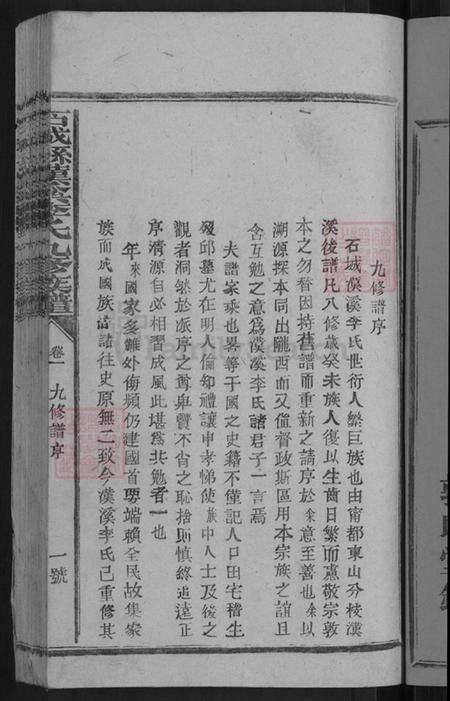 九修譜序
石城濮溪李氏世衍人繁巨族也由甯都東山分棱濮
溪後譜凡八修歲癸未族人復以生齒日繁而稟敬宗敦
本之勿替因持舊譜而重新之請序於余意至善也余以
溯源探本同出隴西而又值督政斯區用本宗族之誼且
含互勉之意為濮溪李氏諸君子一言焉
夫譜家乘也畧等于國之史籍不僅記人口田宅稽生
歿邱墓尤在明人倫知禮讓申孝悌使族中人士及後之
觀者洞然於派序之尊與賢不肖之恥捨則慎終追遠正
序清源自必相習成風此堪為共勉者一也
年來國家多難外侮頻仍建國首要端賴全民故集家
族而成國族諸往史原無二致今濮溪李氏已重修其
石城縣濮溪李氏九修族譜
卷一
九修譜序
一號